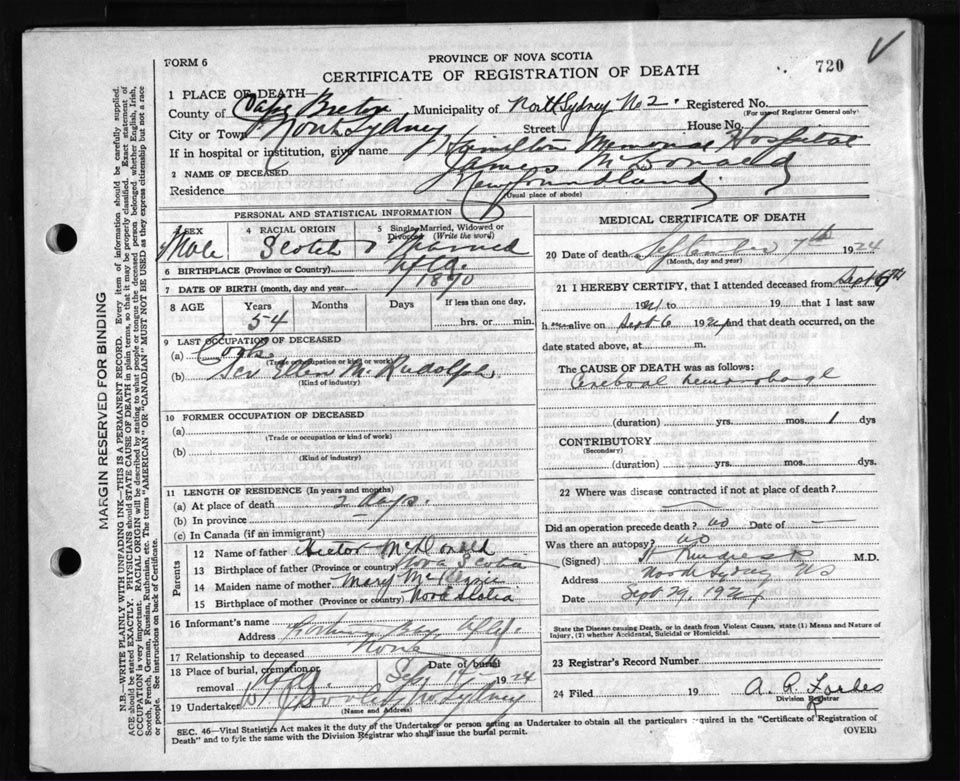 FORM 6
PROVINCE OF NOVA SCOTIA
CERTIFICATE OF REGISTRATION OF DEATH
720
1 PLACE OF DEATH
County of Cape Breton Municipality of North Sydney No 2. Registered No.
(For use of Registrar General only)
City or Town North Sydney Street House No.
If in hospital or institution, give name Hamilton Memorial Hospital
2 NAME OF DECEASED James McDonald
Residence Newfoundland
(Usual place of abode)
PERSONAL AND STATISTICAL INFORMATION
3 SEX Male 4 RACIAL ORIGIN Scotch 5 Single, Married, Widowed or Divorced (Write the word) Married
6 BIRTHPLACE (Province or Country) Nfld.
7 DATE OF BIRTH (month, day and year) 1890
8 AGE Years 54 Months Days If less than one day, hrs. or min.
9 LAST OCCUPATION OF DECEASED
(a) Cook
(Trade or occupation or kind of work)
(b) Scr Ellen M. Rudolph
(Kind of industry)
10 FORMER OCCUPATION OF DECEASED
(a)
(Trade or occupation or kind of work)
(b)
(Kind of industry)
11 LENGTH OF RESIDENCE (In years and months)
(a) At place of death 2 days.
(b) In province —
(c) In Canada (if an immigrant)
Parents
12 Name of father Hector McDonald
13 Birthplace of father (Province or country) Nova Scotia
14 Maiden name of mother Mary
15 Birthplace of mother (Province or country) Nova Scotia
16 Informant's name
Address
17 Relationship to deceased None
18 Place of burial, cremation or removal Date of burial Sep 1924
19 Undertaker Sydney
(Name and Address)
MEDICAL CERTIFICATE OF DEATH
20 Date of death September 7th 1924
(Month, day and year)
21 I HEREBY CERTIFY, that I attended deceased from Sept 6th
1924 to 19 that I last saw
h m alive on Sept 6 1924 and that death occurred, on
date stated above, at m.
The CAUSE OF DEATH was as follows:
Cerebral hemorrhage
(duration) yrs. mos. 1 dys
CONTRIBUTORY
(Secondary)
(duration) yrs. mos. dys.
22 Where was disease contracted if not at place of death?
Did an operation precede death? no Date of —
Was there an autopsy? no
(Signed) M.D.
Address North Sydney NS
Date Sept 29, 1924
State the Disease causing Death, or in death from Violent Causes, state (1) Means and Nature of
Injury, (2) whether Accidental, Suicidal or Homicidal.
23 Registrar's Record Number
24 Filed 19 A. R. Forbes
Division Registrar
SEC. 46—Vital Statistics Act makes it the duty of the Undertaker or person acting as Undertaker to obtain all the particulars required in the "Certificate of Registration of
Death" and to fyle the same with the Division Registrar who shall issue the burial permit.
(OVER)
MARGIN RESERVED FOR BINDING
N.B.—WRITE PLAINLY WITH UNFADING INK—THIS IS A PERMANENT RECORD. Every item of information should be carefully supplied.
AGE should be stated EXACTLY. PHYSICIANS should STATE CAUSE OF DEATH in plain terms, so that it may be properly classified. Exact statement of
OCCUPATION is very important. RACIAL ORIGIN will be described by stating to what people or tongue the deceased person belonged whether English, Irish,
Scotch, French, German, Russian, Ruthenian, etc. The terms "AMERICAN" OR "CANADIAN" MUST NOT BE USED as they express citizenship but not a race
or people. See instructions on back of Certificate.